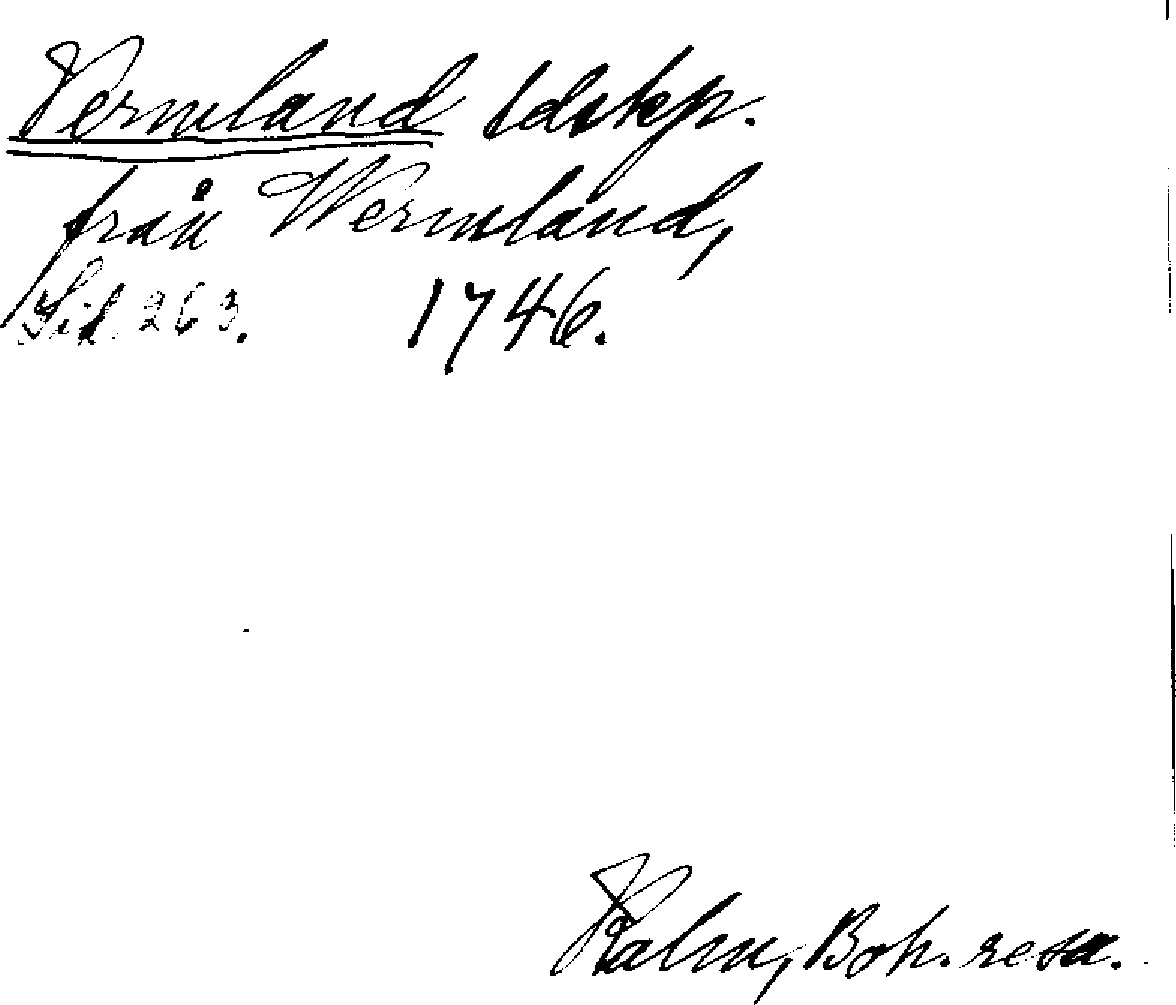 Vermland ldskp.
från Wermland,
Sid. 263. 1746.
Kalm, Boh. resa.